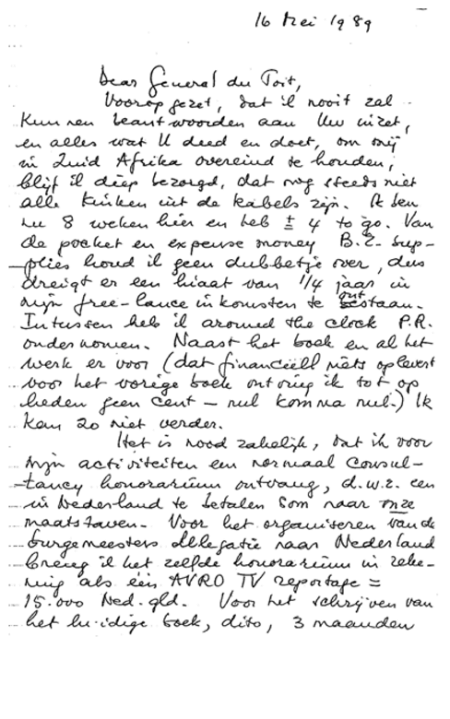 16 Mei 1989
Dear General du Toit,
Voorop gezet, dat ik nooit zal
kunnen beantwoorden aan Uw inzet,
en alles wat U deed en doet, om mij
in Zuid Afrika overeind te houden,
blijf ik diep bezorgd, dat nog steeds niet
alle kinken uit de kabels zijn. Ik ben
nu 8 weken hier en heb ± 4 to go. Van
de pocket en expense money B.Z. sup-
plies houd ik geen dubbeltje over, dus
dreigt er een hiaat van 1/4 jaar in
mijn free-lance inkomsten te ontstaan.
Intussen heb ik around the clock P.R.
ondernomen. Naast het boek en al het
werk er voor (dat financieël niets oplevert
voor het vorige boek ontving ik tot op
heden geen cent - nul komma nul.) Ik
kan zo niet verder.
Het is nood zakelijk, dat ik voor
mijn activiteiten een normaal consul-
tancy honorarium ontvang, d.w.z. een
in Nederland te betalen som naar onze
maatstaven. Voor het organiseren van de
burgemeesters delegatie naar Nederland
breng ik het zelfde honorarium in reke-
ning als één AVRO TV reportage =
15.000 Ned. gld. Voor het schrijven van
het huidige boek, dito, 3 maanden